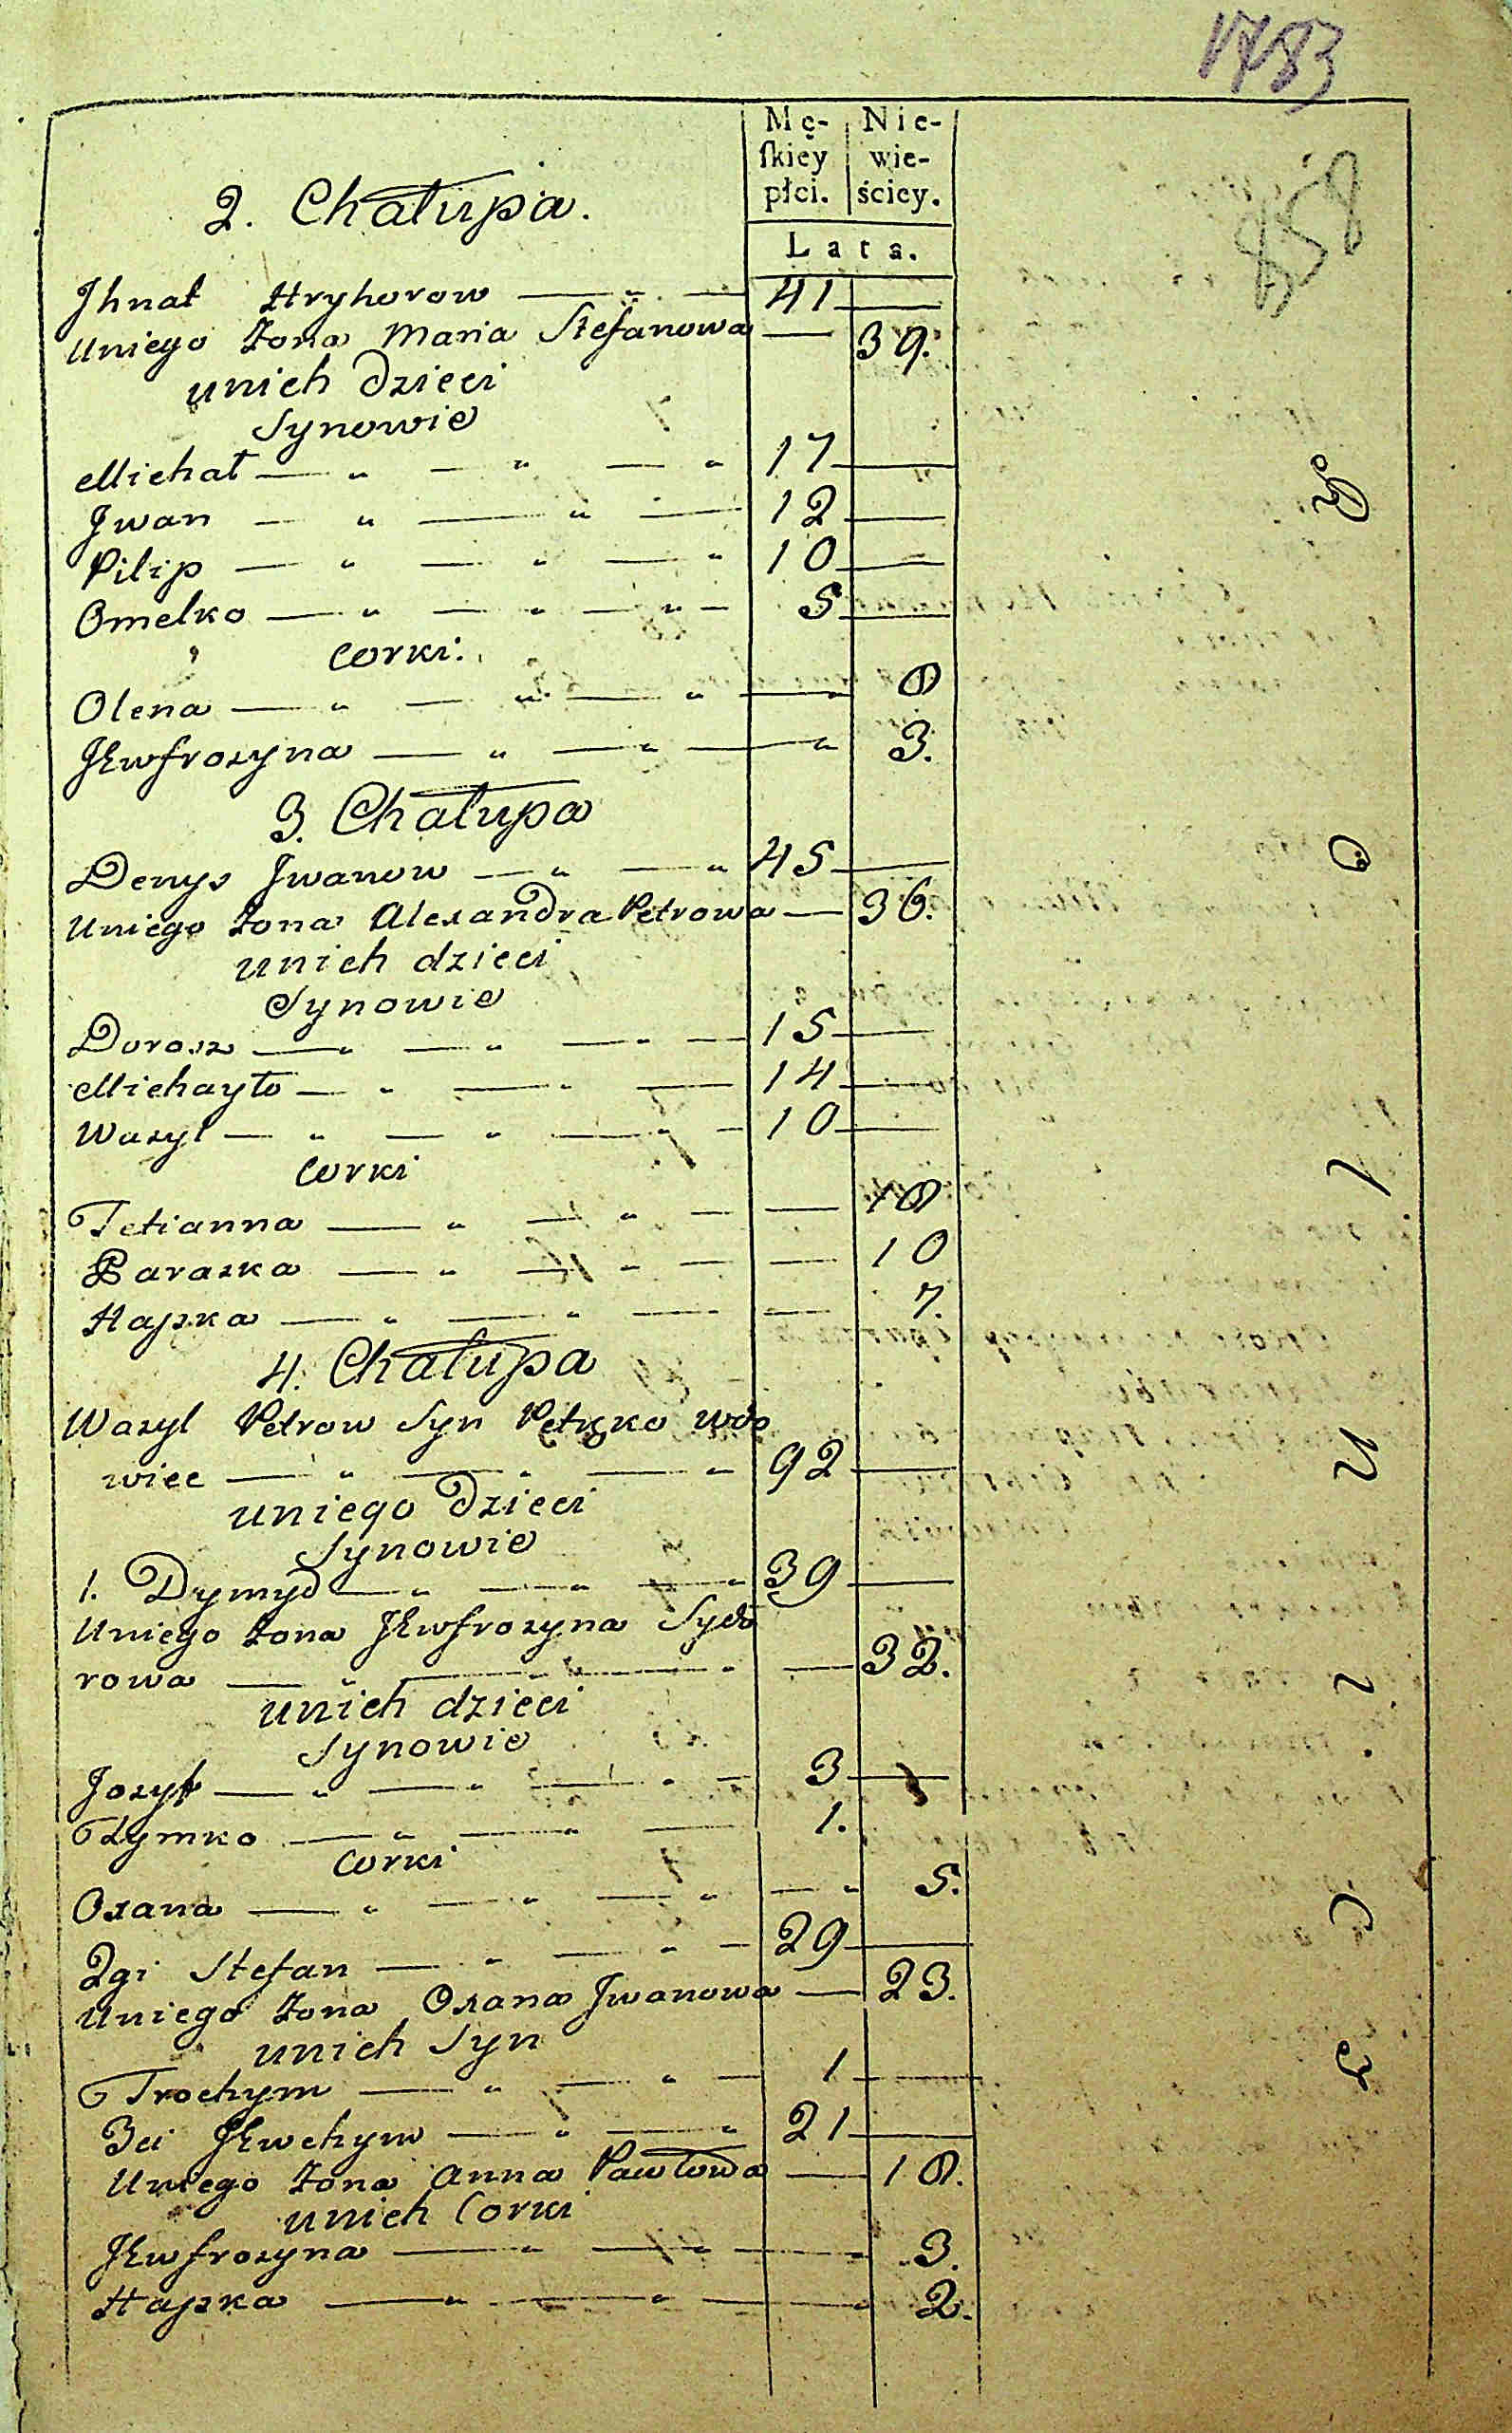 1783
858
Mę- Nie-
ſkiey wie-
płci. ściey.
Lata.
2. Chałupa.
Jhnat Hryhorow — " — 41 —
Uniego Żona Maria Stefanowa — 39.
unich dzieci
Synowie
Michał — " — " — " 17 —
Jwan — " — " — 12 —
Pilip — " — " — " 10 —
Omelko — " — " — " — 5 —
Corki.
Olena — " — " — " — " 8
JEwfrozyna — " — " — " 3.
3. Chałupa
Denys Jwanow — " — " 45 —
Uniego Żona Alexandra Petrowa — 36.
unich dzieci
Synowie
Dorosz — " — " — " — 15 —
Michayło — " — " — 14 —
Wasyl — " — " — " — 10 —
Corki
Tetianna — " — " — — 18
Paraska — " — " — — 10
Hapka — " — " — — 7.
4. Chałupa
Wasyl Petrow Syn wdo
wiec — " — " — " 92 —
uniego Dzieci
Synowie
1. Dymyd — " — " — " 39 —
Uniego Żona JEwfrozyna Sydo
rowa — " — " — " — 32.
unich dzieci
Synowie
Jozyf — " — " — " — 3 —
Tymko — " — " — 1.
Corki
Oxana — " — " — " — " 5.
2gi Stefan — " — " — 29 —
Uniego Żona Oxana Jwanowa — 23.
unich Syn
Trochym — " — " — 1 —
3ci JEwchym — " — " 21 —
Uniego Żona Anna Pawłowa — 18.
unich Corki
JEwfrozyna — " — " — " 3.
Hapka — " — " — " 2.